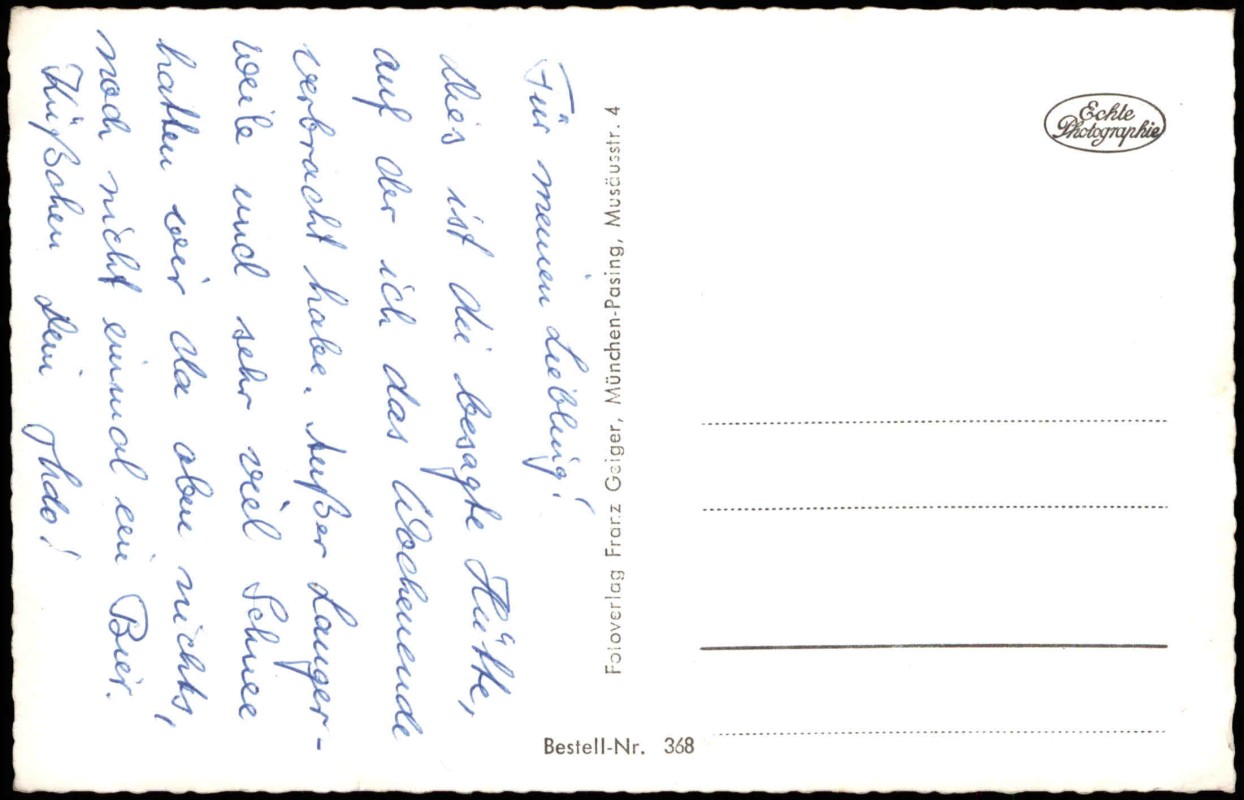 Für meinen Liebling!
Dies ist die besagte Hütte,
auf der ich das Wochenende
verbracht habe. Außer Langer-
weile und sehr viel Schnee
hatten wir da oben nichts,
noch nicht einmal ein Bier.
Küßchen Dein
Fotoverlag Franz Geiger, München-Pasing, Musäusstr. 4
Bestell-Nr. 368
Echte
Photographie